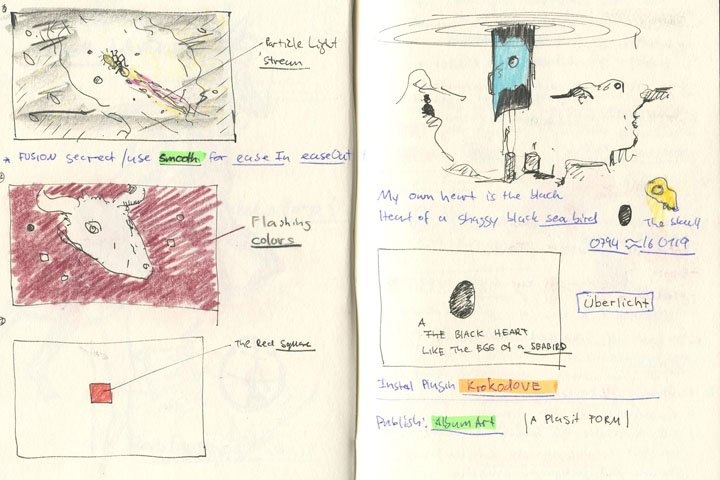 Particle Light
stream
* FUSION secrect / use smooth for ease In easeOut
Flashing
colors
The Red Square
My own heart is the black
Heart of a shaggy black sea bird
The Skull
0794 ≈ 16 0119
Überlicht
A
THE BLACK HEART
LIKE THE EGG OF A SEABIRD
Instal Plugin KrokodOVE
Publish: Album Art | A PlasIt FORM |